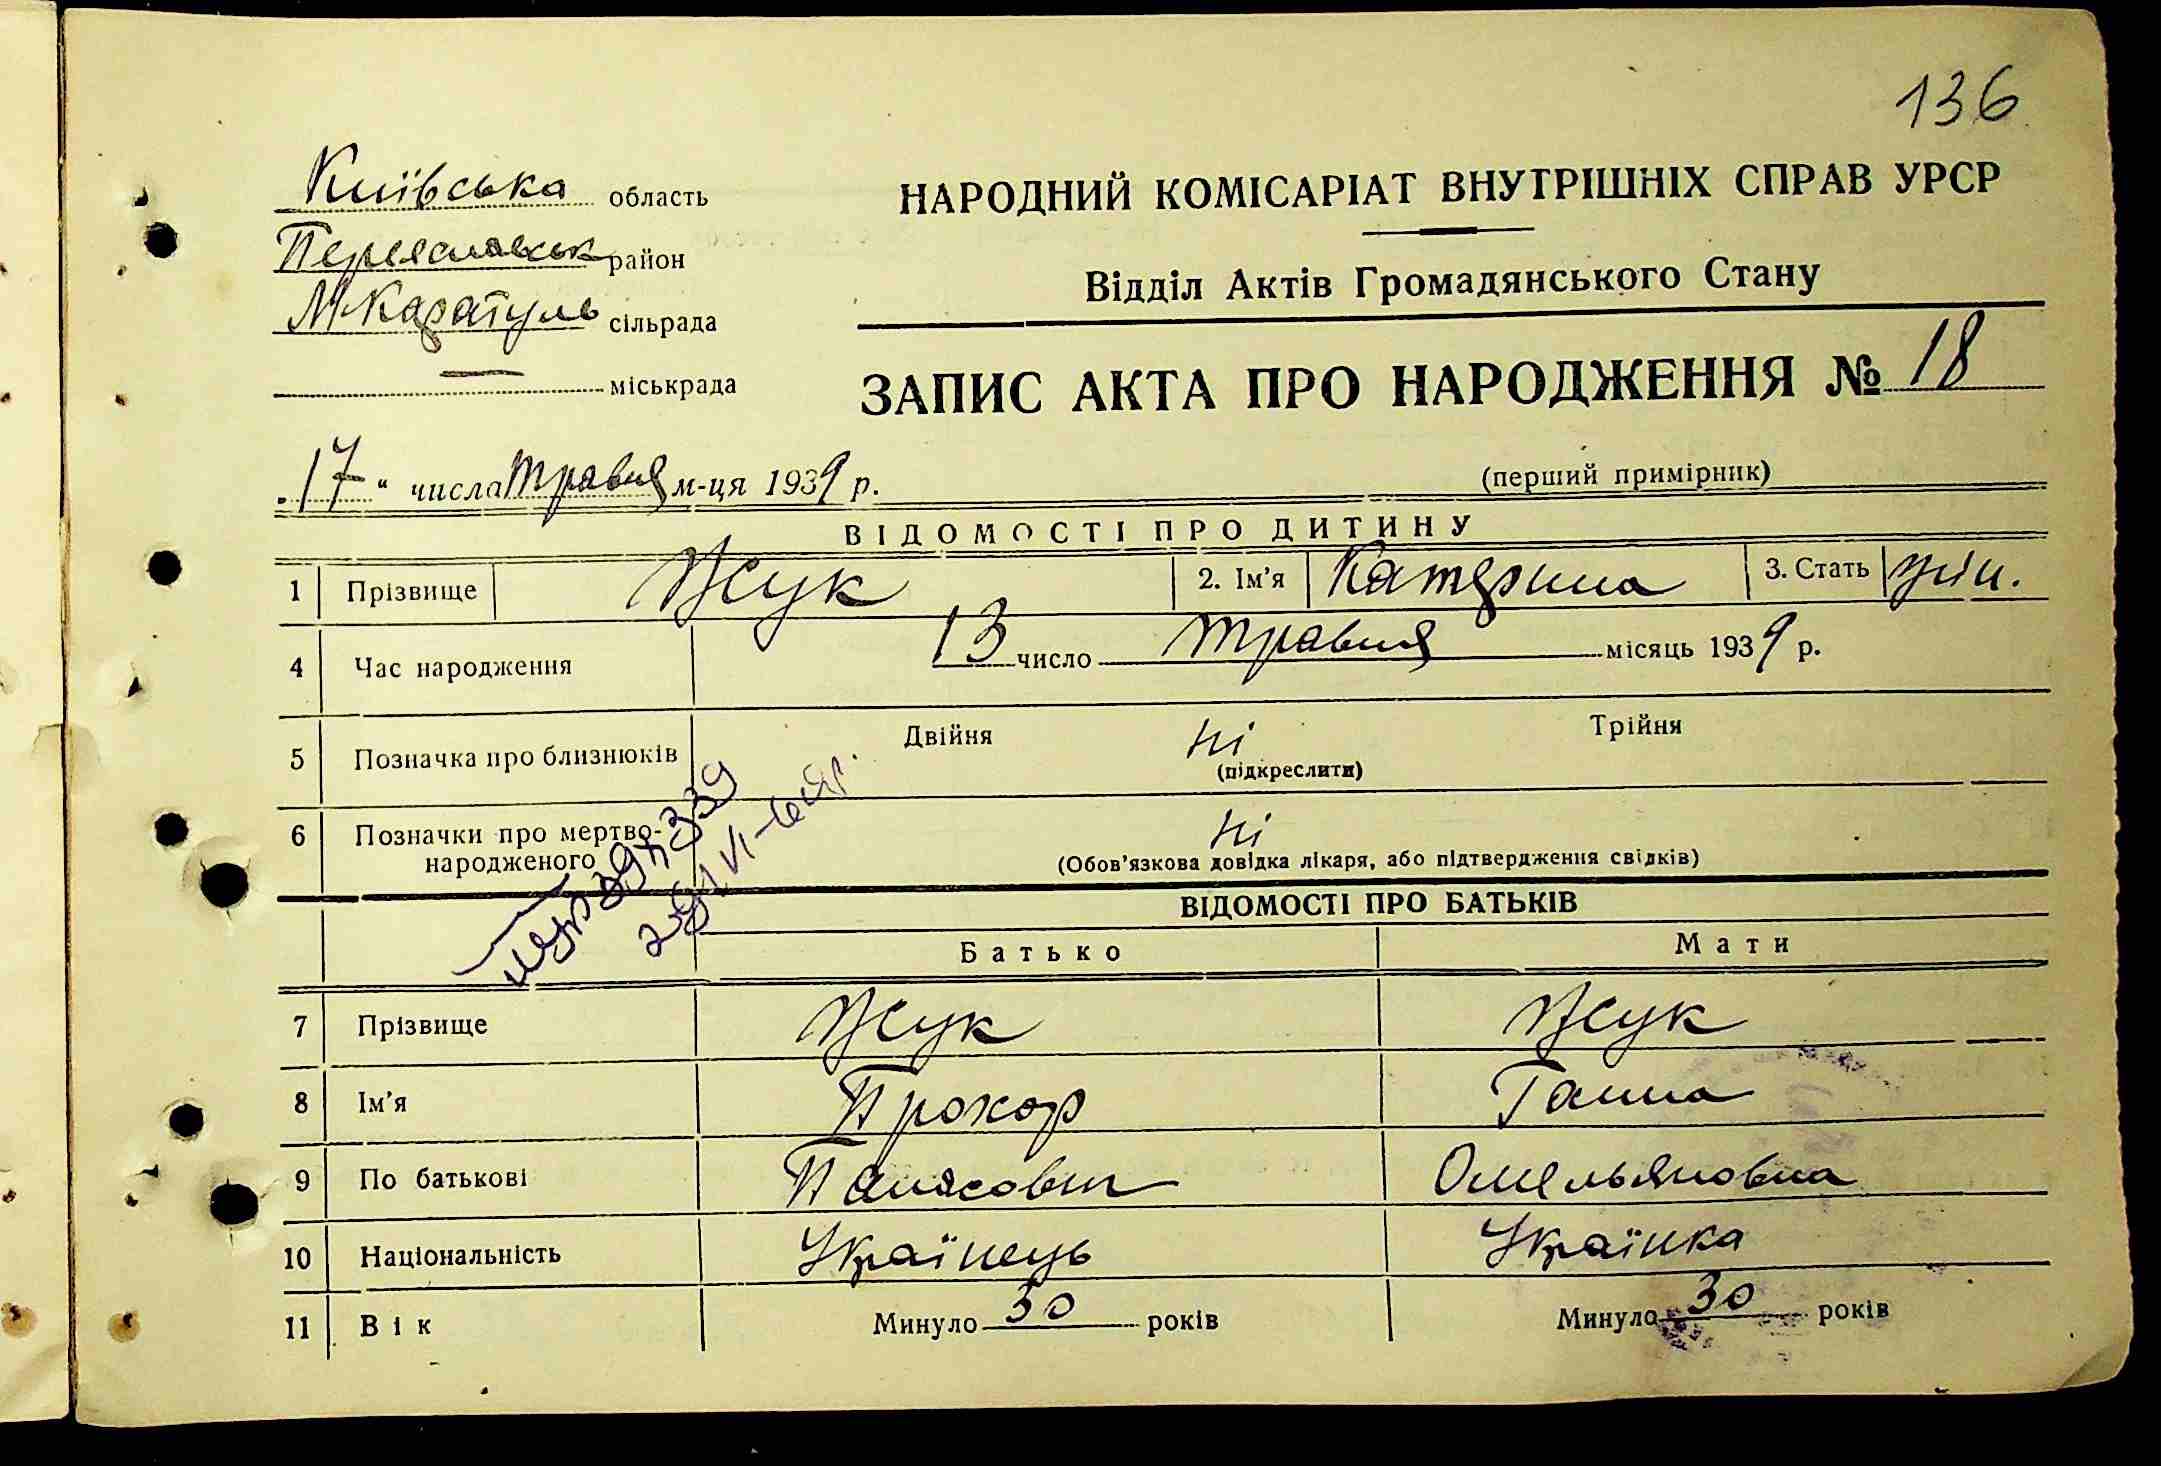 136
Київська область
Переяславськ район
М Каратуль сільрада
— міськрада
НАРОДНИЙ КОМІСАРІАТ ВНУТРІШНІХ СПРАВ УРСР
Відділ Актів Громадянського Стану
ЗАПИС АКТА ПРО НАРОДЖЕННЯ № 18
„17“ числа травня м-ця 1939 р.
(перший примірник)
ВІДОМОСТІ ПРО ДИТИНУ
1 Прізвище Жук 2. Ім'я Катерина 3. Стать жін.
4 Час народження 13 число травня місяць 1939 р.
5 Позначка про близнюків Двійня Ні Трійня
(підкреслити)
6 Позначки про мертво-
народженого Ні
(Обов'язкова довідка лікаря, або підтвердження свідків)
ВІДОМОСТІ ПРО БАТЬКІВ
Батько Мати
7 Прізвище Жук Жук
8 Ім'я Прохор Ганна
9 По батькові Панасович Омельяновна
10 Національність Українець Українка
11 Вік Минуло 30 років Минуло 30 років